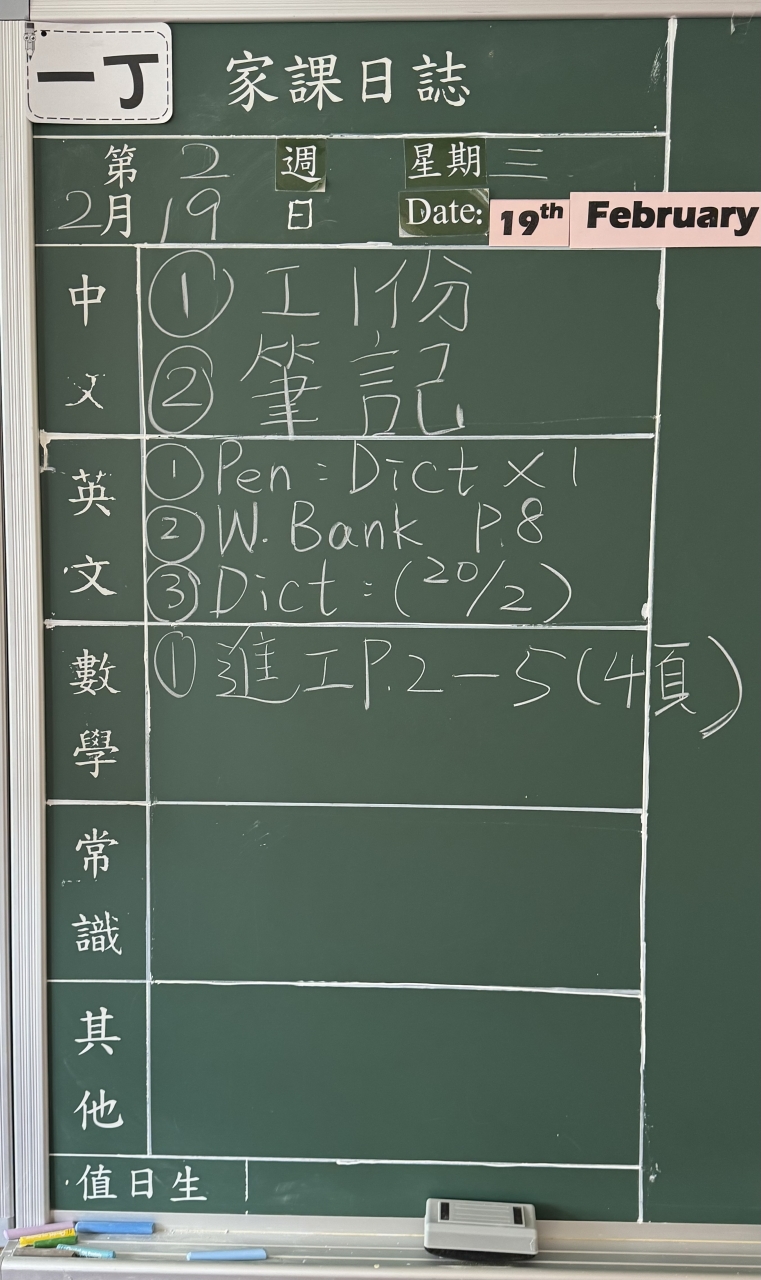 一丁
家課日誌
第 2 週 星期 三
2月 19 日 Date: 19th February
中文
① 工1份
② 筆記
英文
① Pen : Dict × 1
② W. Bank P.8
③ Dict : (20/2)
數學
① 進工P.2－5(4頁)
常識
其他
值日生